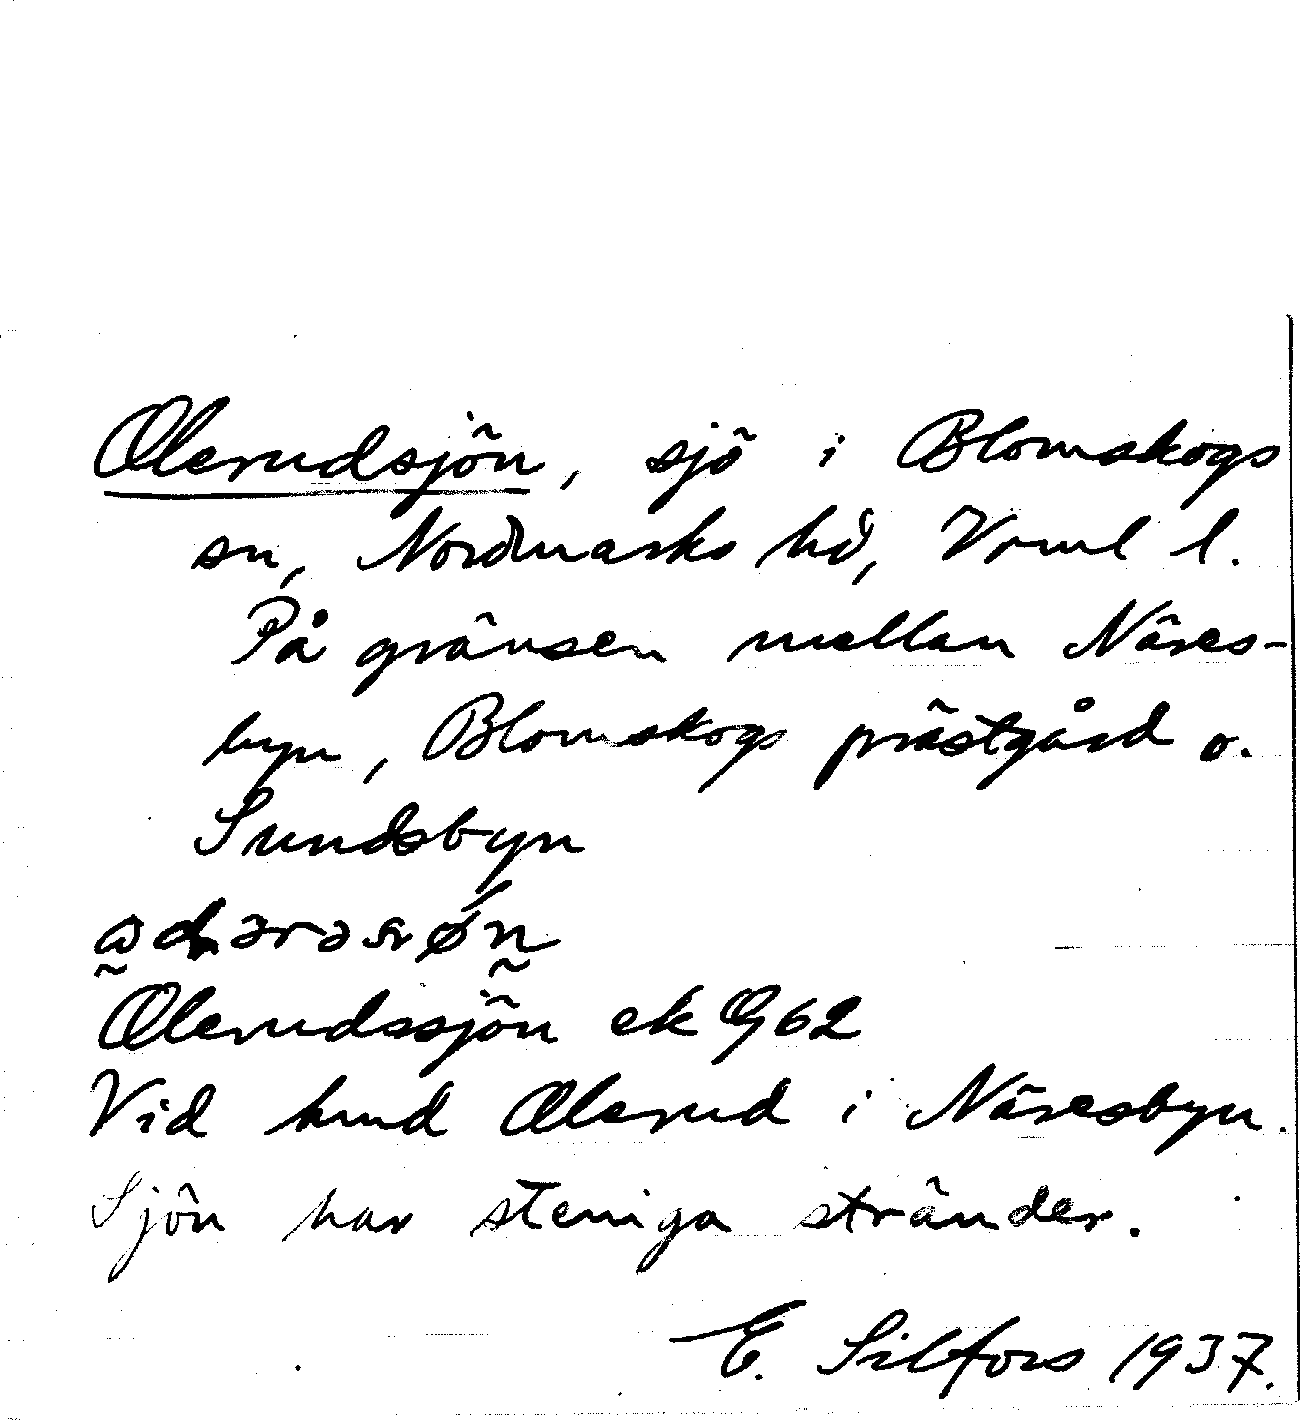 Olerudsjön, sjö i Blomskogs
sn, Nordmarks hd, Vrml l.
På gränsen mellan Näres-
byn, Blomskogs prästgård o.
Sundsbyn
Olerudssjön ek G62
Vid hmd Olerud i Näresbyn.
Sjön har steniga stränder.
E. Silfors 1937.